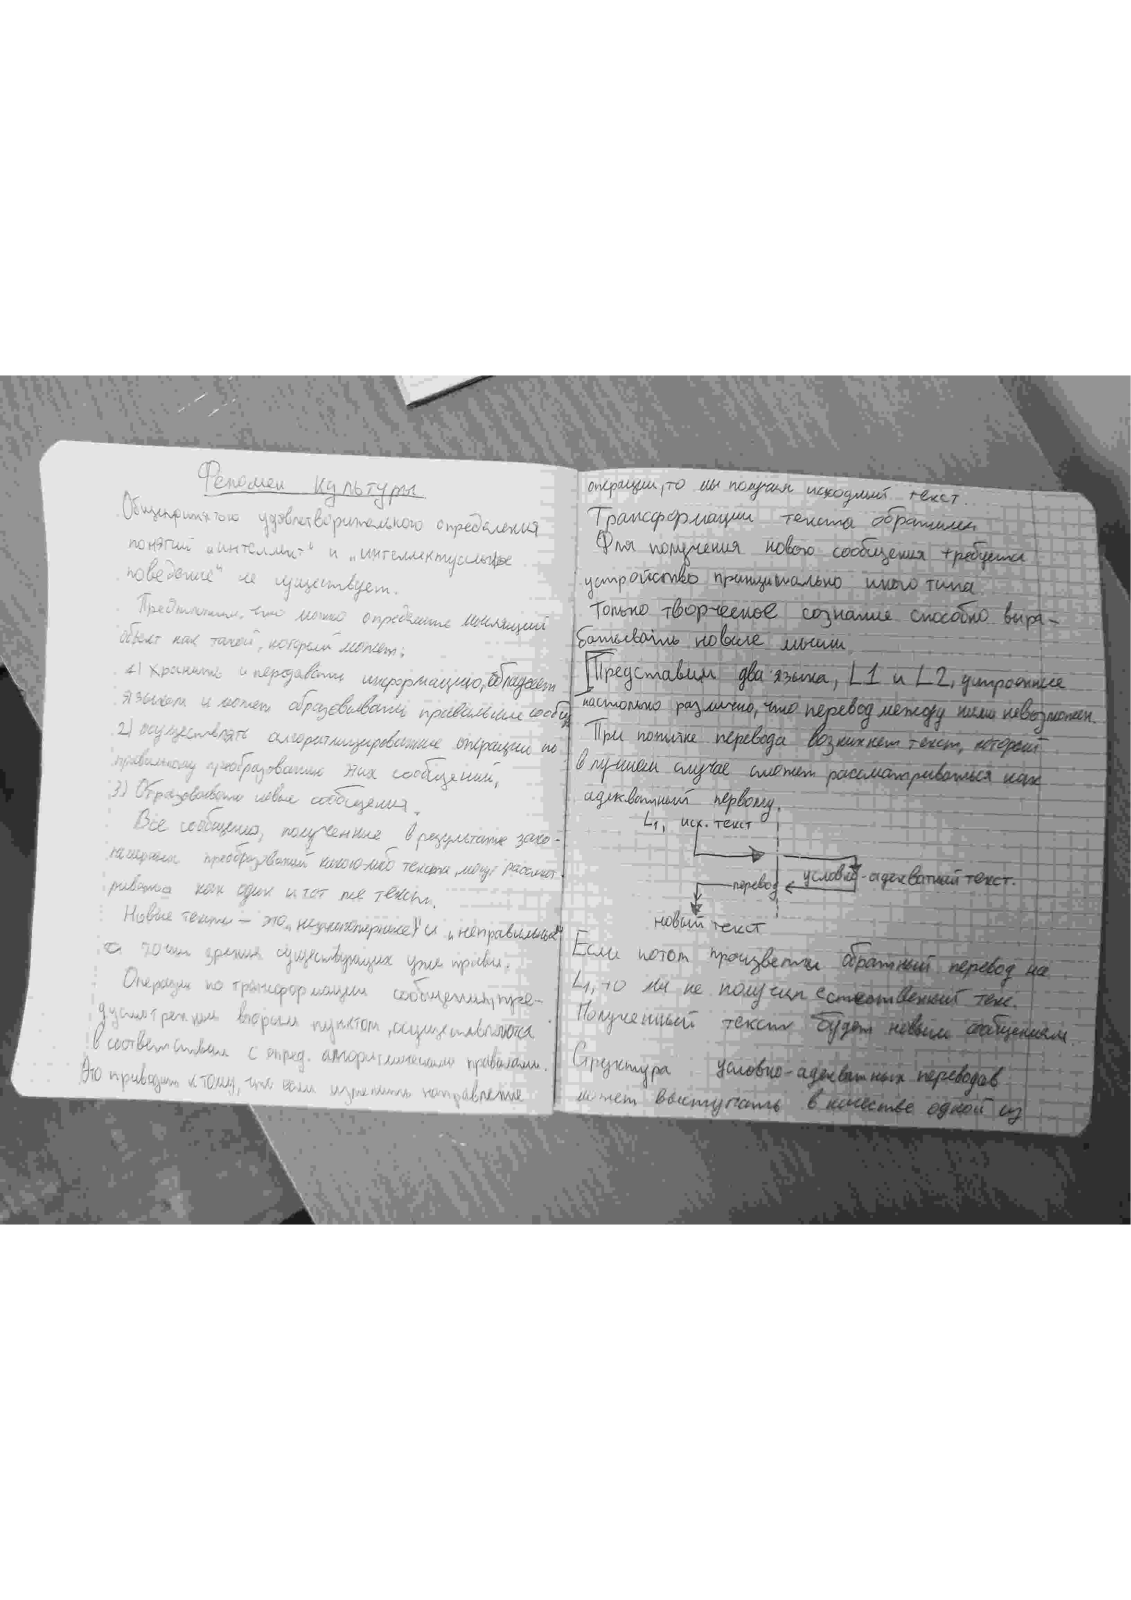 Феномен культуры
Общепринятого удовлетворительного определения
понятий „интеллект“ и „интеллектуальное
поведение“ не существует.
Предположим, что можно определить мыслящий
объект как такой, который может:
1) хранить и передавать информацию, обладает
языком и может образовывать правильные сообщ
2) осуществлять алгоритмизированные операции по
правильному преобразованию этих сообщений,
3) Образовывать новые сообщения.
Все сообщения, полученные в результате зако-
номерных преобразований какого-либо текста, могут рассмат-
риваться как один и тот же текст.
Новые тексты – это „незакономерные“ и „неправильные“
с точки зрения существующих уже правил.
Операции по трансформации сообщения, пре-
дусмотренные вторым пунктом, осуществляются
в соответствии с опред. алгоритмическими правилами.
Это приводит к тому, что если изменить направление
операции, то мы получим исходный текст.
Трансформации текста обратимы
Для получения нового сообщения требуется
устройство принципиально иного типа.
Только творческое сознание способно выра-
батывать новые мысли
Представим два языка, L1 и L2, устроенные
настолько различно, что перевод между ними невозможен.
При попытке перевода возникнет текст, который
в лучшем случае сможет рассматриваться как
адекватный первому.
L1, исх. текст
условно-адекватный текст.
перевод
новый текст
Если потом произвести обратный перевод на
L1, то мы не получим естественный текс.
Полученный текст будет новым сообщением
Структура условно-адекватных переводов
может выступать в качестве одной из